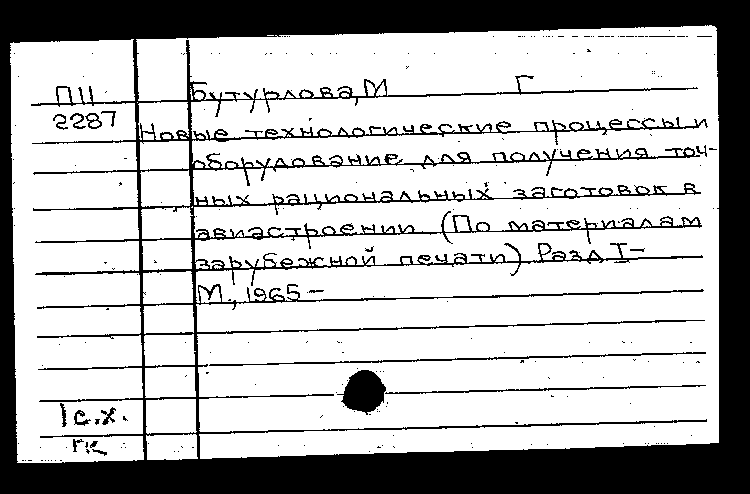 П11 Бутурлова, М Г
2287 Новые технологические процессы и
оборудование для получения точ-
ных рациональных заготовок в
авиастроении (По материалам
зарубежной печати) Разд I-
М., 1965-
1с.х.
гк